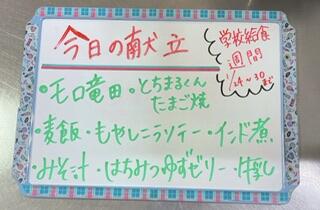 今日の献立
学校給食
週間
1/24~30まで
・モロ竜田・とちまるくん
たまご焼
・麦飯・もやしニラソテー・インド煮
・みそ汁・はちみつゆずゼリー・牛乳